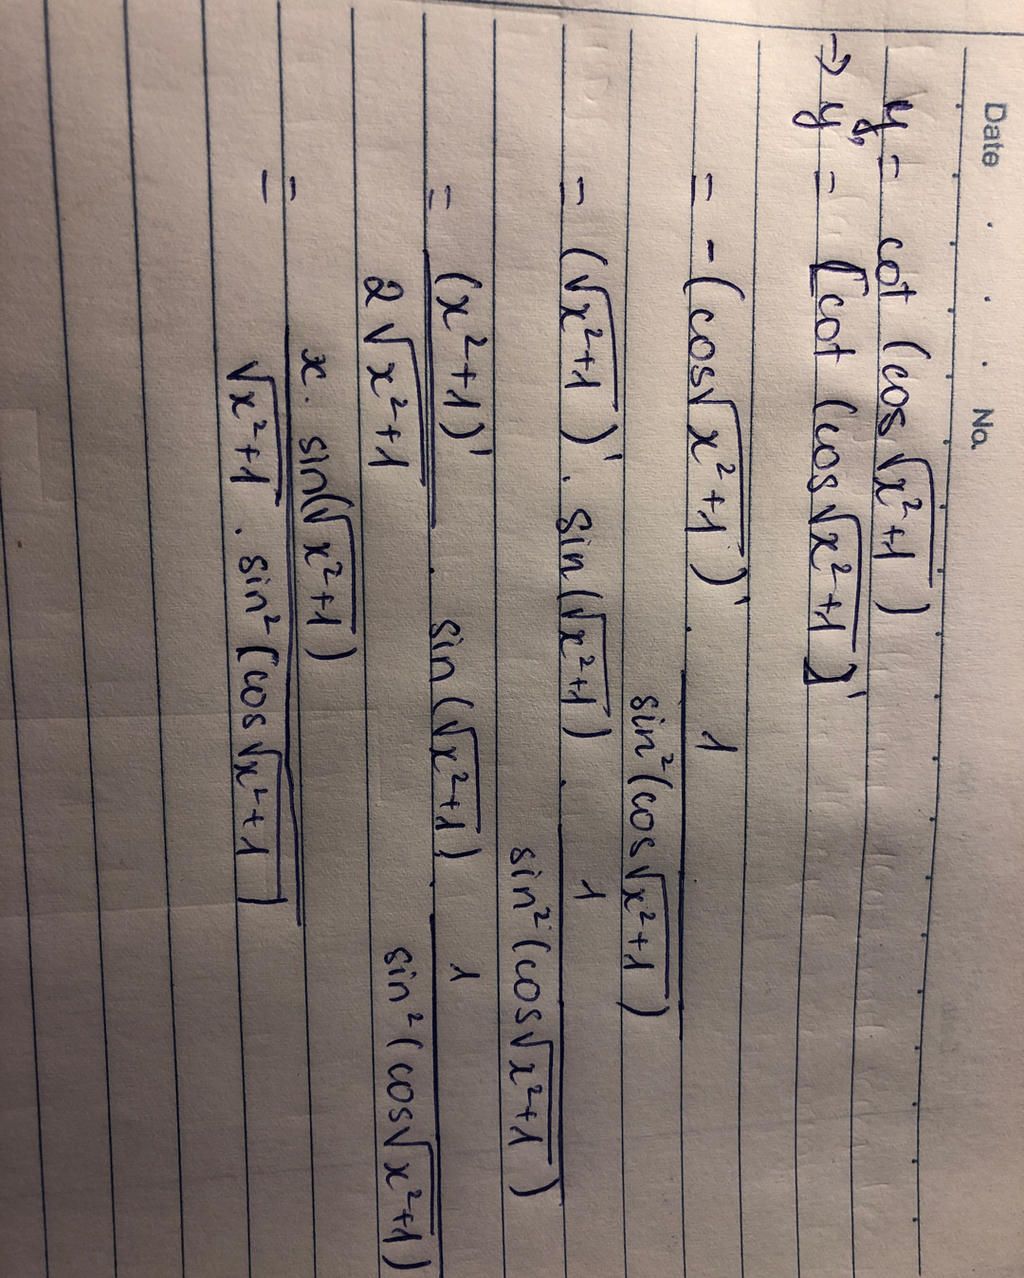 Date . . . No
y = cot (cos √x²+1)
→ y' = [cot (cos √x²+1)]'
= -(cos√x²+1)' . 1
sin²(cos √x²+1)
= (√x²+1)' . sin(√x²+1) . 1
sin²(cos√x²+1)
= (x²+1)' . sin(√x²+1) . 1
2√x²+1 sin²(cos√x²+1)
= x. sin(√x²+1)
= √x²+1 . sin²(cos√x²+1)